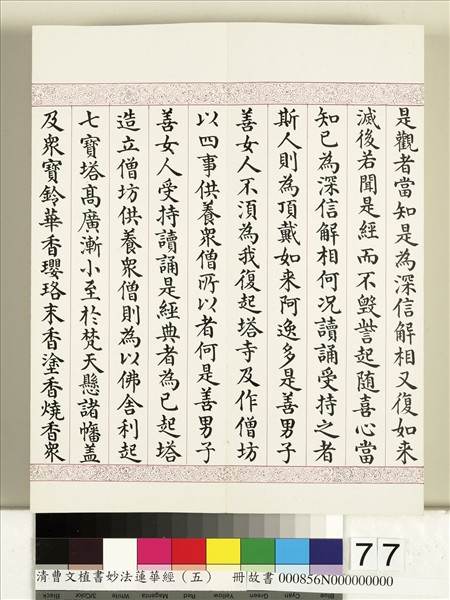 是觀者當知是為深信解相又復如来
滅後若聞是經而不毀呰起隨喜心當
知已為深信解相何况讀誦受持之者
斯人則為頂戴如来阿逸多是善男子
善女人不須為我復起塔寺及作僧坊
以四事供養衆僧所以者何是善男子
善女人受持讀誦是經典者為已起塔
造立僧坊供養衆僧則為以佛舍利起
七寶塔高廣漸小至於梵天懸諸幡盖
及衆寶鈴華香瓔珞末香塗香燒香衆
77
清曹文植書妙法蓮華經（五） 冊故書 000856N000000000
Black 3/Color White Magenta Red Yellow Green Cyan Blue